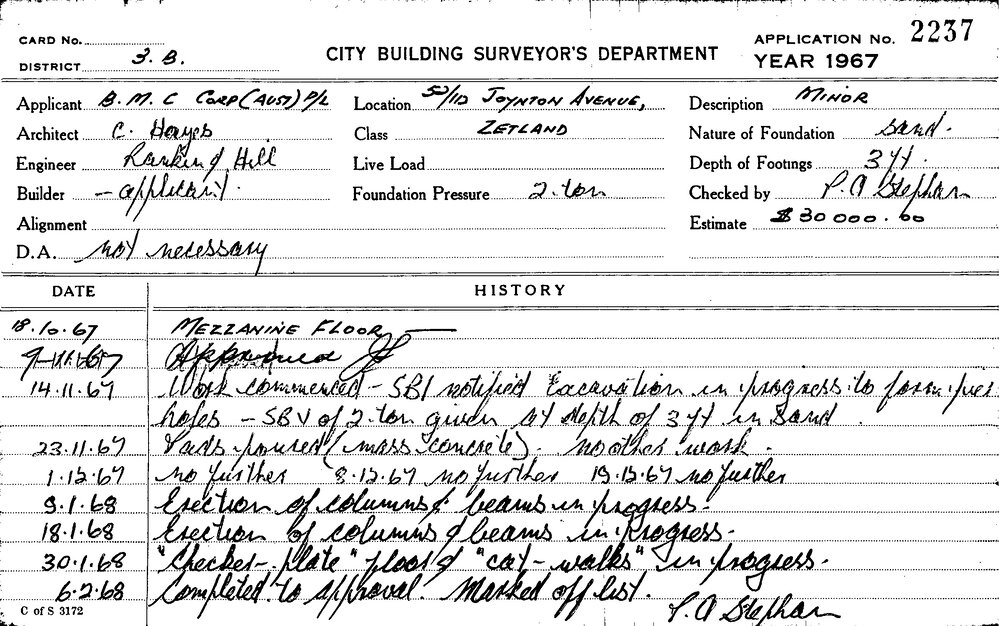 CARD No.
DISTRICT 3. B.
CITY BUILDING SURVEYOR'S DEPARTMENT
APPLICATION No. 2237
YEAR 1967
Applicant B. M. C CORP (AUST) P/L
Location 52/110 JOYNTON AVENUE,
Description MINOR
Architect C. Hayes
Class ZETLAND
Nature of Foundation sand.
Engineer Rankin & Hill
Live Load
Depth of Footings 3 ft.
Builder – applicant.
Foundation Pressure 2. ton
Checked by P. A Stephan
Alignment
Estimate $ 30 000. 00
D.A. not necessary
DATE HISTORY
18.10.67 MEZZANINE FLOOR —
9-11.67 Approved
14.11.67 Work commenced – SBI notified Excavation in progress to form pier
holes – SBV of 2. ton given at depth of 3 ft in Sand
23.11.67 Pads poured (mass concrete). no other work.
1.12.67 no further 8.12.67 no further 19.12.67 no further
9.1.68 Erection of columns & beams in progress.
18.1.68 Erection of columns & beams in progress.
30.1.68 "Checker-plate" floor & "cat-walks" in progress.
6.2.68 Completed to approval. Marked off list.
P. A Stephan
C of S 3172